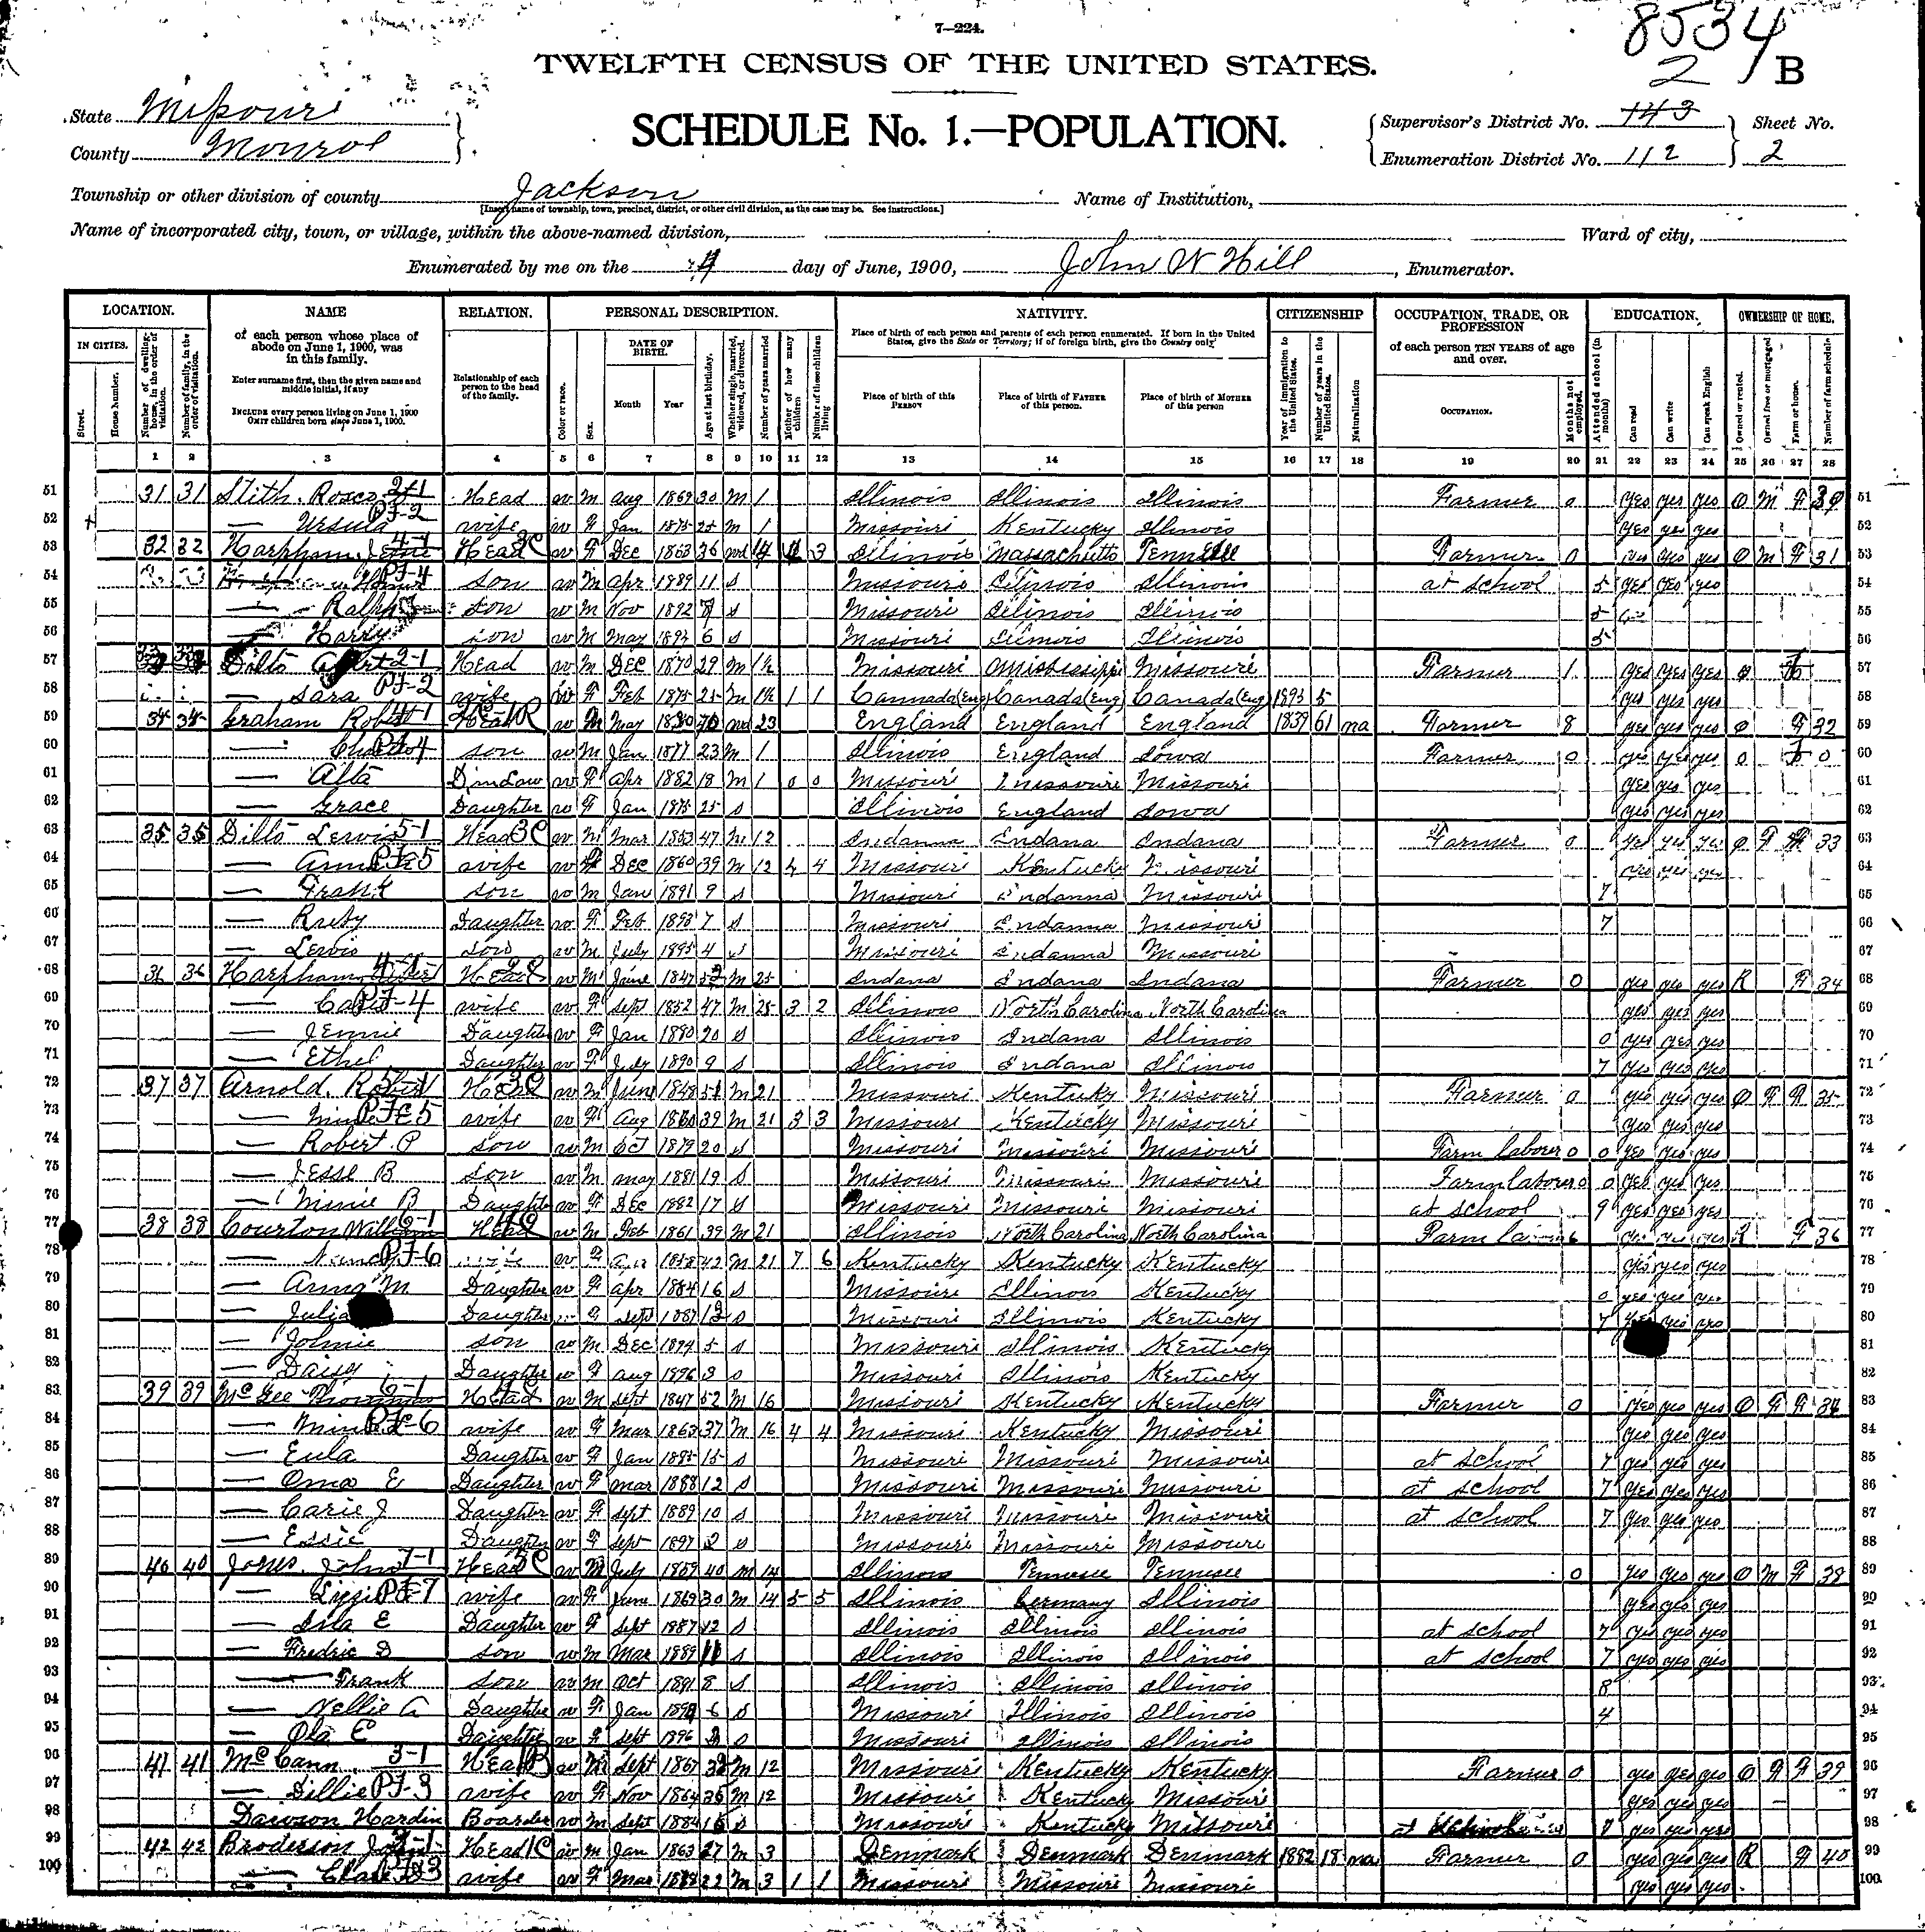 7—224.
8534
2
B
TWELFTH CENSUS OF THE UNITED STATES.
State Missouri
County Monroe
SCHEDULE No. 1.—POPULATION.
Supervisor's District No. 143
Enumeration District No. 112
Sheet No. 2
Township or other division of county Jackson
[Insert name of township, town, precinct, district, or other civil division, as the case may be. See instructions.]
Name of Institution,
Name of incorporated city, town, or village, within the above-named division,
Ward of city,
Enumerated by me on the 4 day of June, 1900, John W Hill, Enumerator.
LOCATION. NAME RELATION. PERSONAL DESCRIPTION. NATIVITY. CITIZENSHIP OCCUPATION, TRADE, OR PROFESSION EDUCATION. OWNERSHIP OF HOME.
IN CITIES. Street. House Number. Number of dwelling-house, in the order of visitation. Number of family, in the order of visitation.
of each person whose place of abode on June 1, 1900, was in this family.
Enter surname first, then the given name and middle initial, if any
INCLUDE every person living on June 1, 1900 OMIT children born since June 1, 1900.
Relationship of each person to the head of the family.
Color or race. Sex. DATE OF BIRTH. Month Year Age at last birthday. Whether single, married, widowed, or divorced. Number of years married Mother of how many children Number of these children living
Place of birth of each person and parents of each person enumerated. If born in the United States, give the State or Territory; if of foreign birth, give the Country only
Place of birth of this PERSON Place of birth of FATHER of this person. Place of birth of MOTHER of this person
Year of immigration to the United States. Number of years in the United States. Naturalization
of each person TEN YEARS of age and over.
OCCUPATION. Months not employed. Attended school (in months) Can read Can write Can speak English Owned or rented. Owned free or mortgaged Farm or home. Number of farm schedule
1 2 3 4 5 6 7 8 9 10 11 12 13 14 15 16 17 18 19 20 21 22 23 24 25 26 27 28
51 31 31 Stith. Rosco Head w M Aug 1869 30 M 1 Illinois Illinois Illinois Farmer 0 yes yes yes O M F 51
52 — Ursula wife w F Jan 1875 25 M 1 Missouri Kentucky Illinois yes yes yes 52
53 32 32 Harpham Head w F Dec 1863 36 wd 3 Illinois Massachuetts Farmer 0 yes yes yes O M F 31 53
54 son w M Apr 1889 11 s Missouri Illinois Illinois at school 5 yes yes yes 54
55 — Ralph son w M Nov 1892 7 s Missouri Illinois Illinois 5 55
56 — Harry son w M May 6 s Missouri Illinois Illinois 5 56
57 Dills Head w M Dec 1870 29 M Missouri Mississippi Missouri Farmer 1 yes yes yes O 57
58 — Sara wife w F Feb 1875 25 M 1 1 Cannada (Eng) Canada (Eng) Canada (Eng) 1895 5 yes yes yes 58
59 34 34 Graham Robert Head w M May 1830 70 wd 23 England England England 1839 61 na Farmer 8 yes yes yes O F 32 59
60 son w M Jan 1877 23 M 1 Illinois England Iowa Farmer 0 yes yes yes O 0 60
61 — Alta D in Law w F Apr 1882 18 M 1 0 0 Missouri Missouri Missouri yes yes yes 61
62 — Grace Daughter w F Jan 1875 25 s Illinois England Iowa yes yes yes 62
63 35 35 Dills Lewis Head w M Mar 1853 47 M 12 Indanna Indana Indana Farmer 0 yes yes yes O F F 33 63
64 — wife w F Dec 1860 39 M 12 4 4 Missouri Kentucky Missouri 64
65 — Frank son w M Jan 1891 9 s Missouri Indanna Missouri 7 65
66 — Ruby Daughter w F Feb 1893 7 s Missouri Indanna Missouri 7 66
67 — Lewis son w M July 1895 4 s Missouri Indanna Missouri 67
68 36 36 Harpham Head w M June 1847 52 M 25 Indana Indana Indana Farmer 0 yes yes yes R F 34 68
69 — wife w F Sept 1852 47 M 25 3 2 Illinois North Carolina North Carolina yes yes yes 69
70 — Jennie Daughter w F Jan 1880 20 s Illinois Indana Illinois 0 yes yes yes 70
71 — Ethel Daughter w F July 1890 9 s Illinois Indana Illinois 7 yes yes yes 71
72 37 37 Arnold. Robert Head w M June 1848 51 M 21 Missouri Kentucky Missouri Farmer 0 yes yes yes O F F 35 72
73 — wife w F Aug 1860 39 M 21 3 3 Missouri Kentucky Missouri yes yes yes 73
74 — Robert P son w M Oct 1879 20 s Missouri Missouri Missouri Farm laborer 0 0 yes yes yes 74
75 — Jesse B son w M May 1881 19 s Missouri Missouri Missouri Farm laborer 0 0 yes yes yes 75
76 — Minnie B Daughter w F Dec 1882 17 s Missouri Missouri Missouri at school 9 yes yes yes 76
77 38 38 Courton William Head w M Feb 1861 39 M 21 Illinois North Carolina North Carolina 6 R F 36 77
78 — wife F 1858 42 M 21 7 6 Kentucky Kentucky Kentucky yes yes yes 78
79 — Anna M Daughter w F Apr 1884 16 s Missouri Illinois Kentucky 0 yes yes yes 79
80 — Julia Daughter F Sept 1887 12 s Missouri Illinois Kentucky 7 80
81 — Johnie son w M Dec 1894 5 s Missouri Illinois Kentucky 81
82 — Daisy Daughter w F Aug 1896 3 s Missouri Illinois Kentucky 82
83 39 39 McGee Thommas Head w M Sept 1847 52 M 16 Missouri Kentucky Kentucky Farmer 0 yes yes yes O F F 83
84 — wife w F Mar 1863 37 M 16 4 4 Missouri Kentucky Missouri yes yes yes 84
85 — Eula Daughter w F Jan 15 s Missouri Missouri Missouri at school 7 yes yes yes 85
86 — Oma E Daughter w F Mar 1888 12 s Missouri Missouri Missouri at school 7 yes yes yes 86
87 — Carie J Daughter w F Sept 1889 10 s Missouri Missouri Missouri at school 7 yes yes yes 87
88 — Essie Daughter w F Sept 1897 2 s Missouri Missouri Missouri 88
89 40 40 Jones. John Head w M July 1859 40 M 14 Illinois Tennesee Tennesee 0 yes yes yes O M F 38 89
90 — wife w F June 1869 30 M 14 5 5 Illinois Germany Illinois yes yes yes 90
91 — Ina E Daughter w F Sept 1887 12 s Illinois Illinois Illinois at school 7 yes yes yes 91
92 — Fredric D son w M Mar 1889 11 s Illinois Illinois Illinois at school 7 yes yes yes 92
93 — Frank son w M Oct 1891 8 s Illinois Illinois Illinois 8 93
94 — Nellie A Daughter w F Jan 1894 6 s Missouri Illinois Illinois 4 94
95 — Ola E Daughter w F Sept 1896 3 s Missouri Illinois Illinois 95
96 41 41 McCann Head w M Sept 1867 32 M 12 Missouri Kentucky Kentucky Farmer 0 yes yes yes O F F 39 96
97 — Dillie wife w F Nov 1864 35 M 12 Missouri Kentucky Missouri yes yes yes 97
98 Dawson Hardin Boarder w M Sept 1884 15 s Missouri Kentucky Missouri yes yes yes 98
99 42 42 Broderson Head w M Jan 1863 M 3 Denmark Denmark Denmark 1882 18 na Farmer 0 yes yes yes R F 40 99
100 — wife w F Mar 22 M 3 1 1 Missouri Missouri Missouri yes yes yes 100